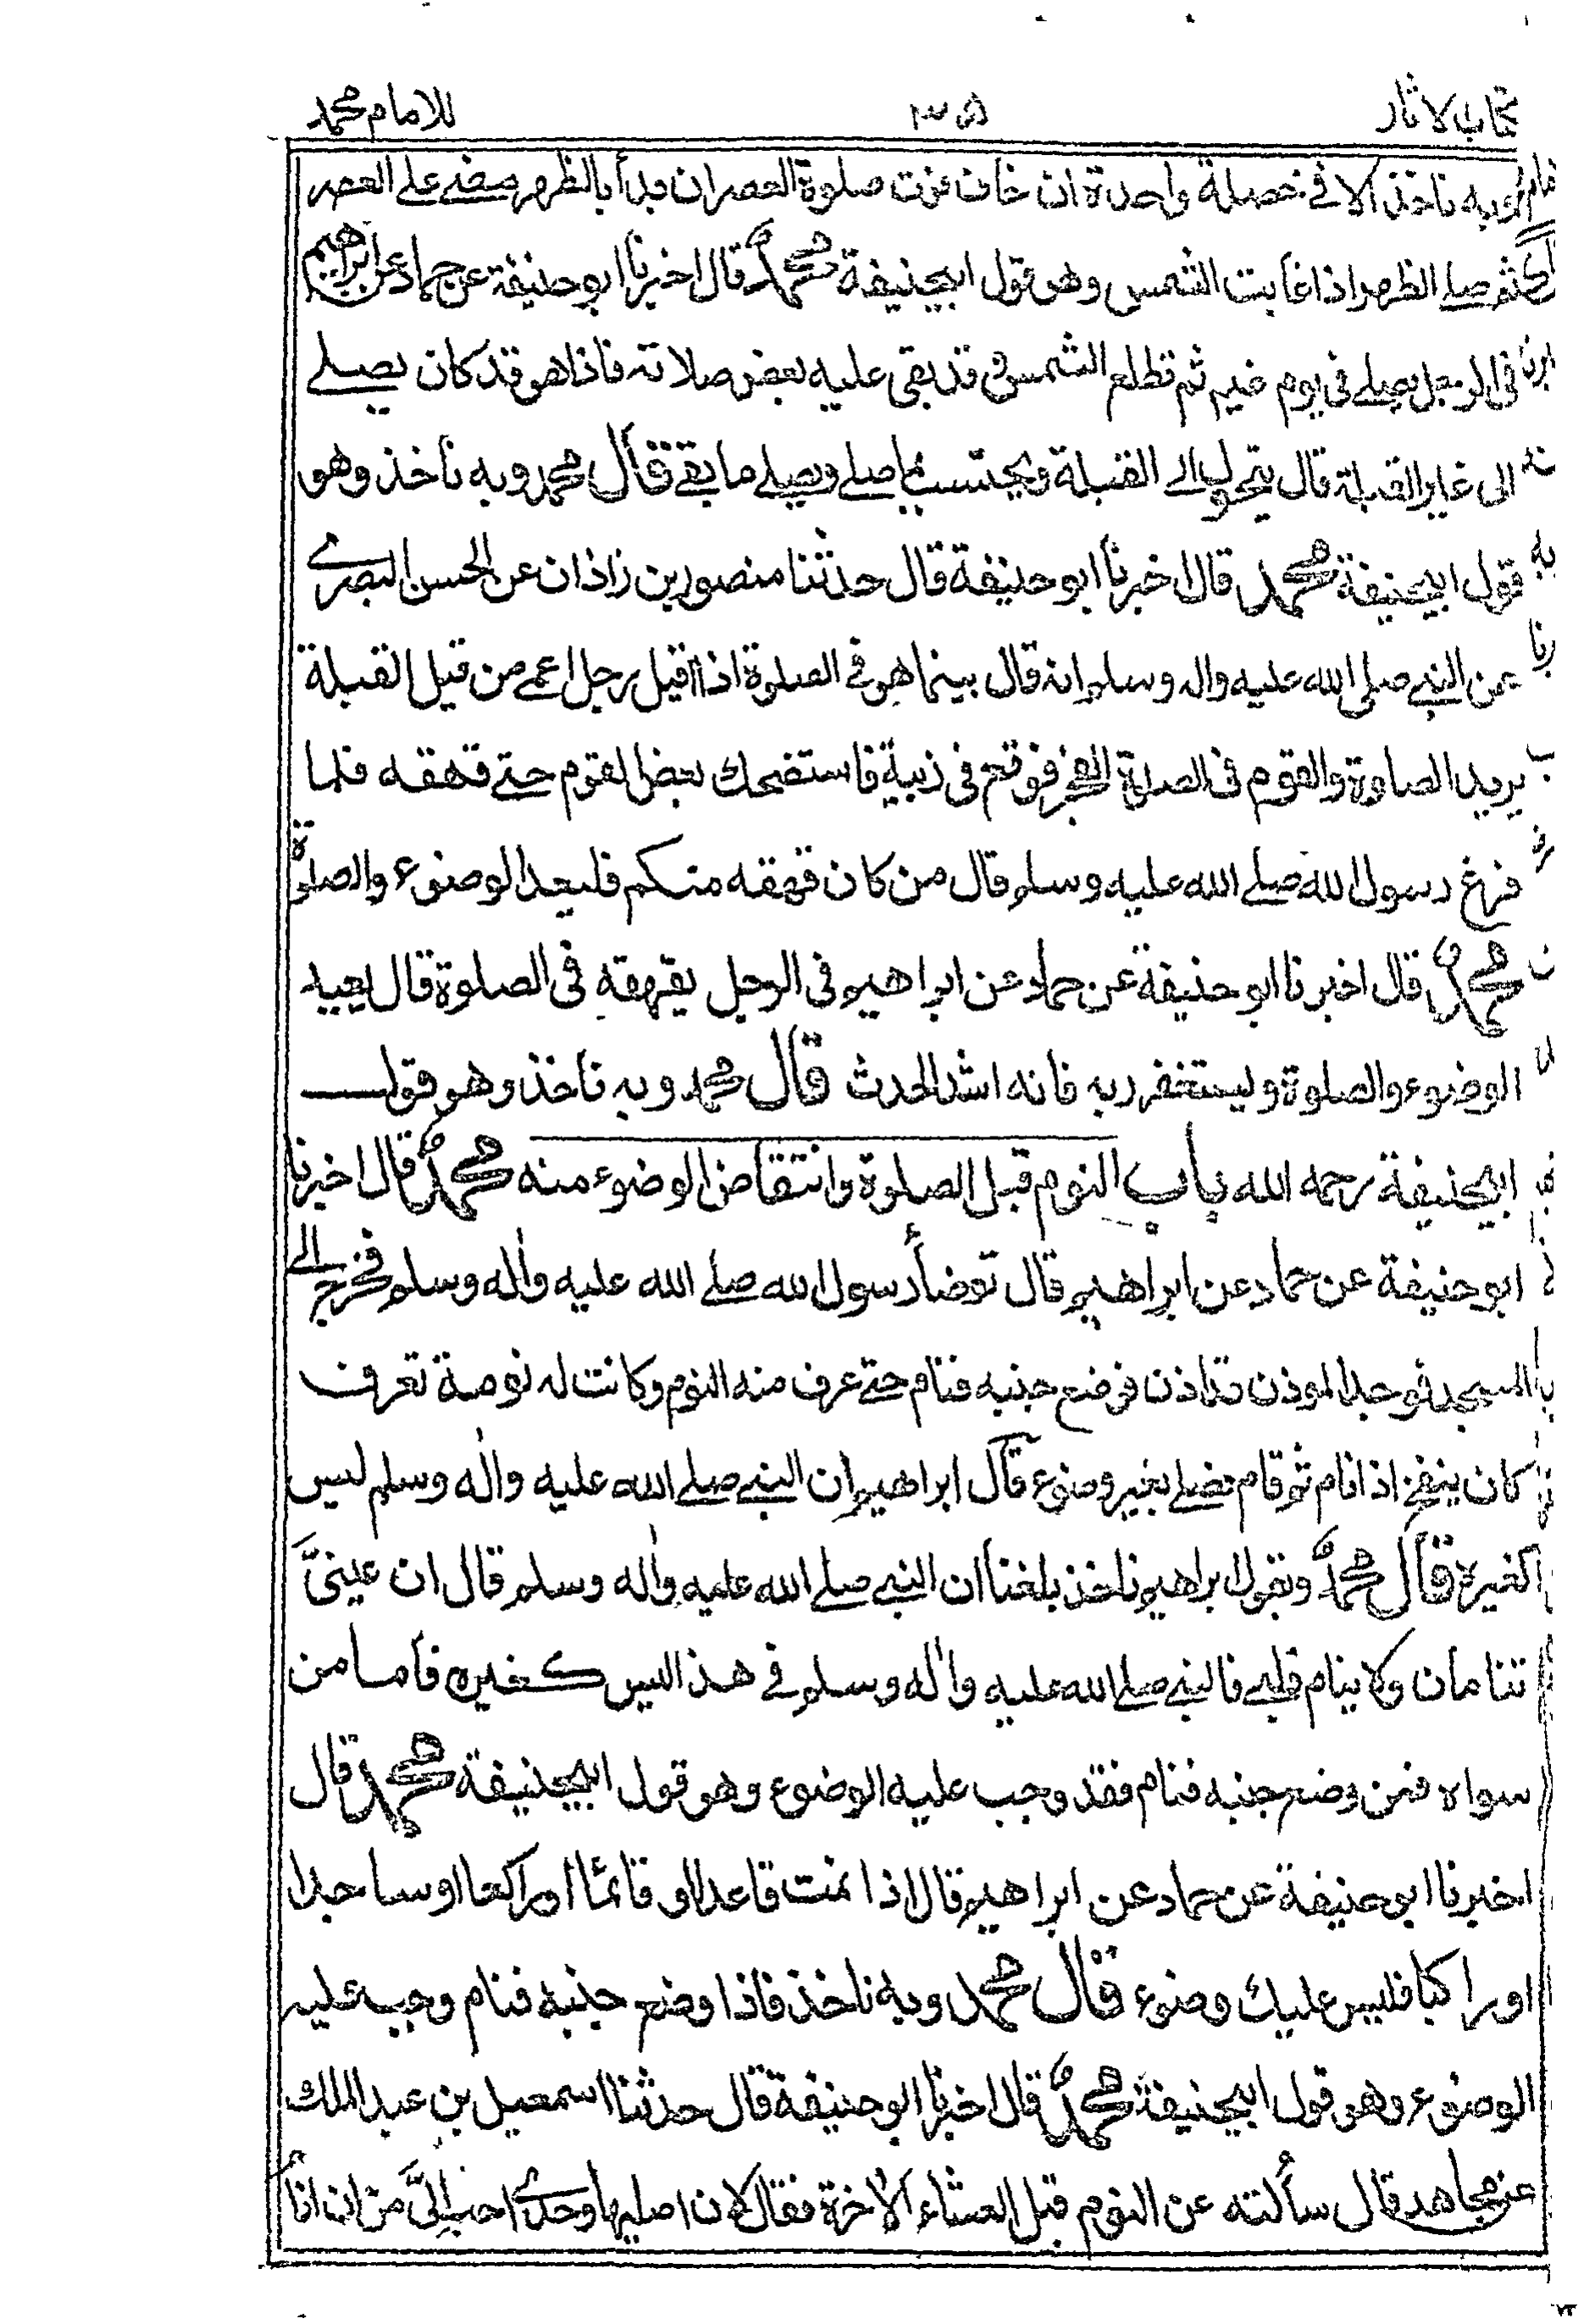 كتاب الاثار ٣٥ للامام محمد
وبه ناخذ الا في خصلة واحدة ان خاف فوت صلوة العصر ان بدأ بالظهر مضى على العصر
ثم صلى الظهر اذا غابت الشمس وهو قول ابيحنيفة محمد قال اخبرنا ابو حنيفة عن حماد عن ابراهيم
في الرجل يصلى في يوم غيم ثم تطلع الشمس وقد بقى عليه بعض صلاته فاذا هو قد كان يصلى
الى غير القبلة قال يتحول الى القبلة ويحتسب بما صلى ويصلى ما بقى قال محمد وبه ناخذ وهو
قول ابيحنيفة محمد قال اخبرنا ابو حنيفة قال حدثنا منصور بن زاذان عن الحسن البصرى
عن النبى صلى الله عليه واله وسلم انه قال بينما هو فى الصلوة اذا اقبل رجل اعمى من قبل القبلة
يريد الصلوة والقوم فى الصلوة الفجر فوقع فى زبية فاستضحك بعض القوم حتى قهقه فلما
فرغ رسول الله صلى الله عليه وسلم قال من كان قهقه منكم فليعد الوضوء والصلوة
محمد قال اخبرنا ابو حنيفة عن حماد عن ابراهيم فى الرجل يقهقه فى الصلوة قال يعيد
الوضوء والصلوة وليستغفر ربه فانه اشد الحدث قال محمد وبه ناخذ وهو قول
ابيحنيفة رحمه الله باب النوم قبل الصلوة وانتقاض الوضوء منه محمد قال اخبرنا
ابو حنيفة عن حماد عن ابراهيم قال توضأ رسول الله صلى الله عليه واله وسلم فخرج الى
المسجد فوجد الموذن قد اذن فوضع جنبه فنام حتى عرف منه النوم وكانت له نومة تعرف
كان ينفخ اذا نام ثم قام فصلى بغير وضوء قال ابراهيم ان النبى صلى الله عليه واله وسلم ليس
كغيره قال محمد وبقول ابراهيم ناخذ بلغنا ان النبى صلى الله عليه واله وسلم قال ان عينىَّ
تنامان ولا ينام قلبى فالنبى صلى الله عليه واله وسلم فى هذا ليس كغيره فأما من
سواه فمن وضع جنبه فنام فقد وجب عليه الوضوع وهو قول ابيحنيفة محمد قال
اخبرنا ابو حنيفة عن حماد عن ابراهيم قال اذا نمت قاعدا او قائما او راكعا او ساجدا
او راكبا فليس عليك وضوء قال محمد وبه ناخذ فاذا وضع جنبه فنام وجب عليه
الوضوء وهو قول ابيحنيفة محمد قال اخبرنا ابو حنيفة قال حدثنا اسمعيل بن عبد الملك
عن مجاهد قال سألته عن النوم قبل العشاء الاخرة فقال لان اصليها وحدى احب الىَّ من ان انام